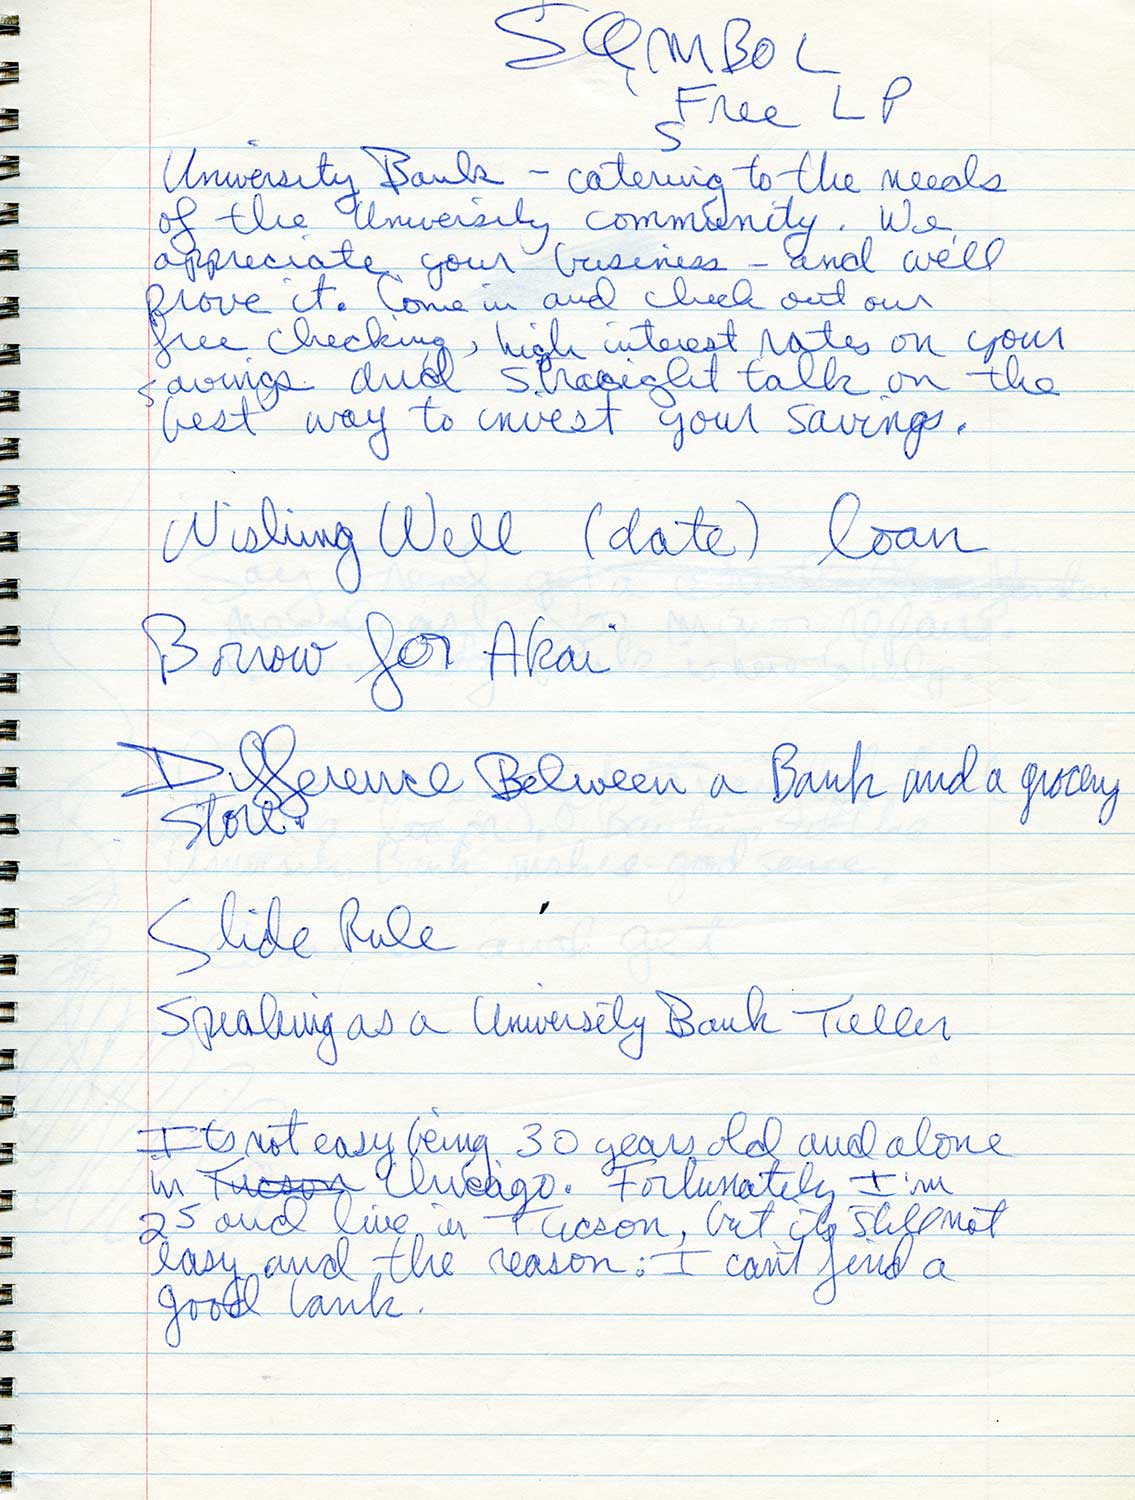 SYMBOL
Free LP
5
University Bank - catering to the needs
of the University community. We
appreciate your business - and we'll
prove it. Come in and check out our
free checking, high interest rates on your
savings and straight talk on the
best way to invest your savings.
Wishing Well (date) loan
Borrow for Akai
Difference Between a Bank and a grocery
store.
Slide Rule
Speaking as a University Bank Teller
Its not easy being 30 years old and alone
in Tucson Chicago. Fortunately I'm
25 and live in Tucson, but its still not
easy and the reason: I can't find a
good bank.